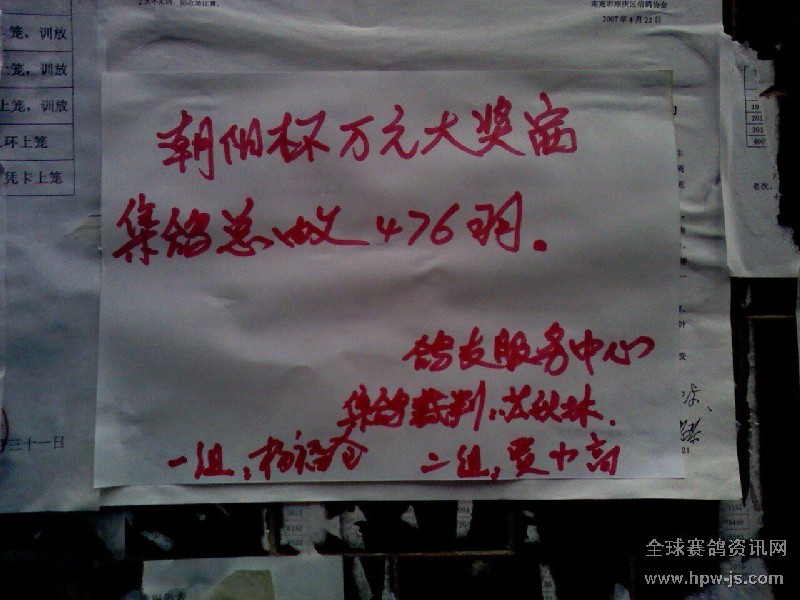 南充市顺庆区信鸽协会
2007年4月22日
笼，训放
上笼，训放
上笼，训放
环上笼
凭卡上笼
10
201
301
400
名次
朝阳杯万元大奖赛
集鸽总收476羽。
鸽友服务中心
集鸽裁判：苏秋林.
一组：杨
二组：贾中高
三十一日
21
全球赛鸽资讯网
www.hpw-js.com